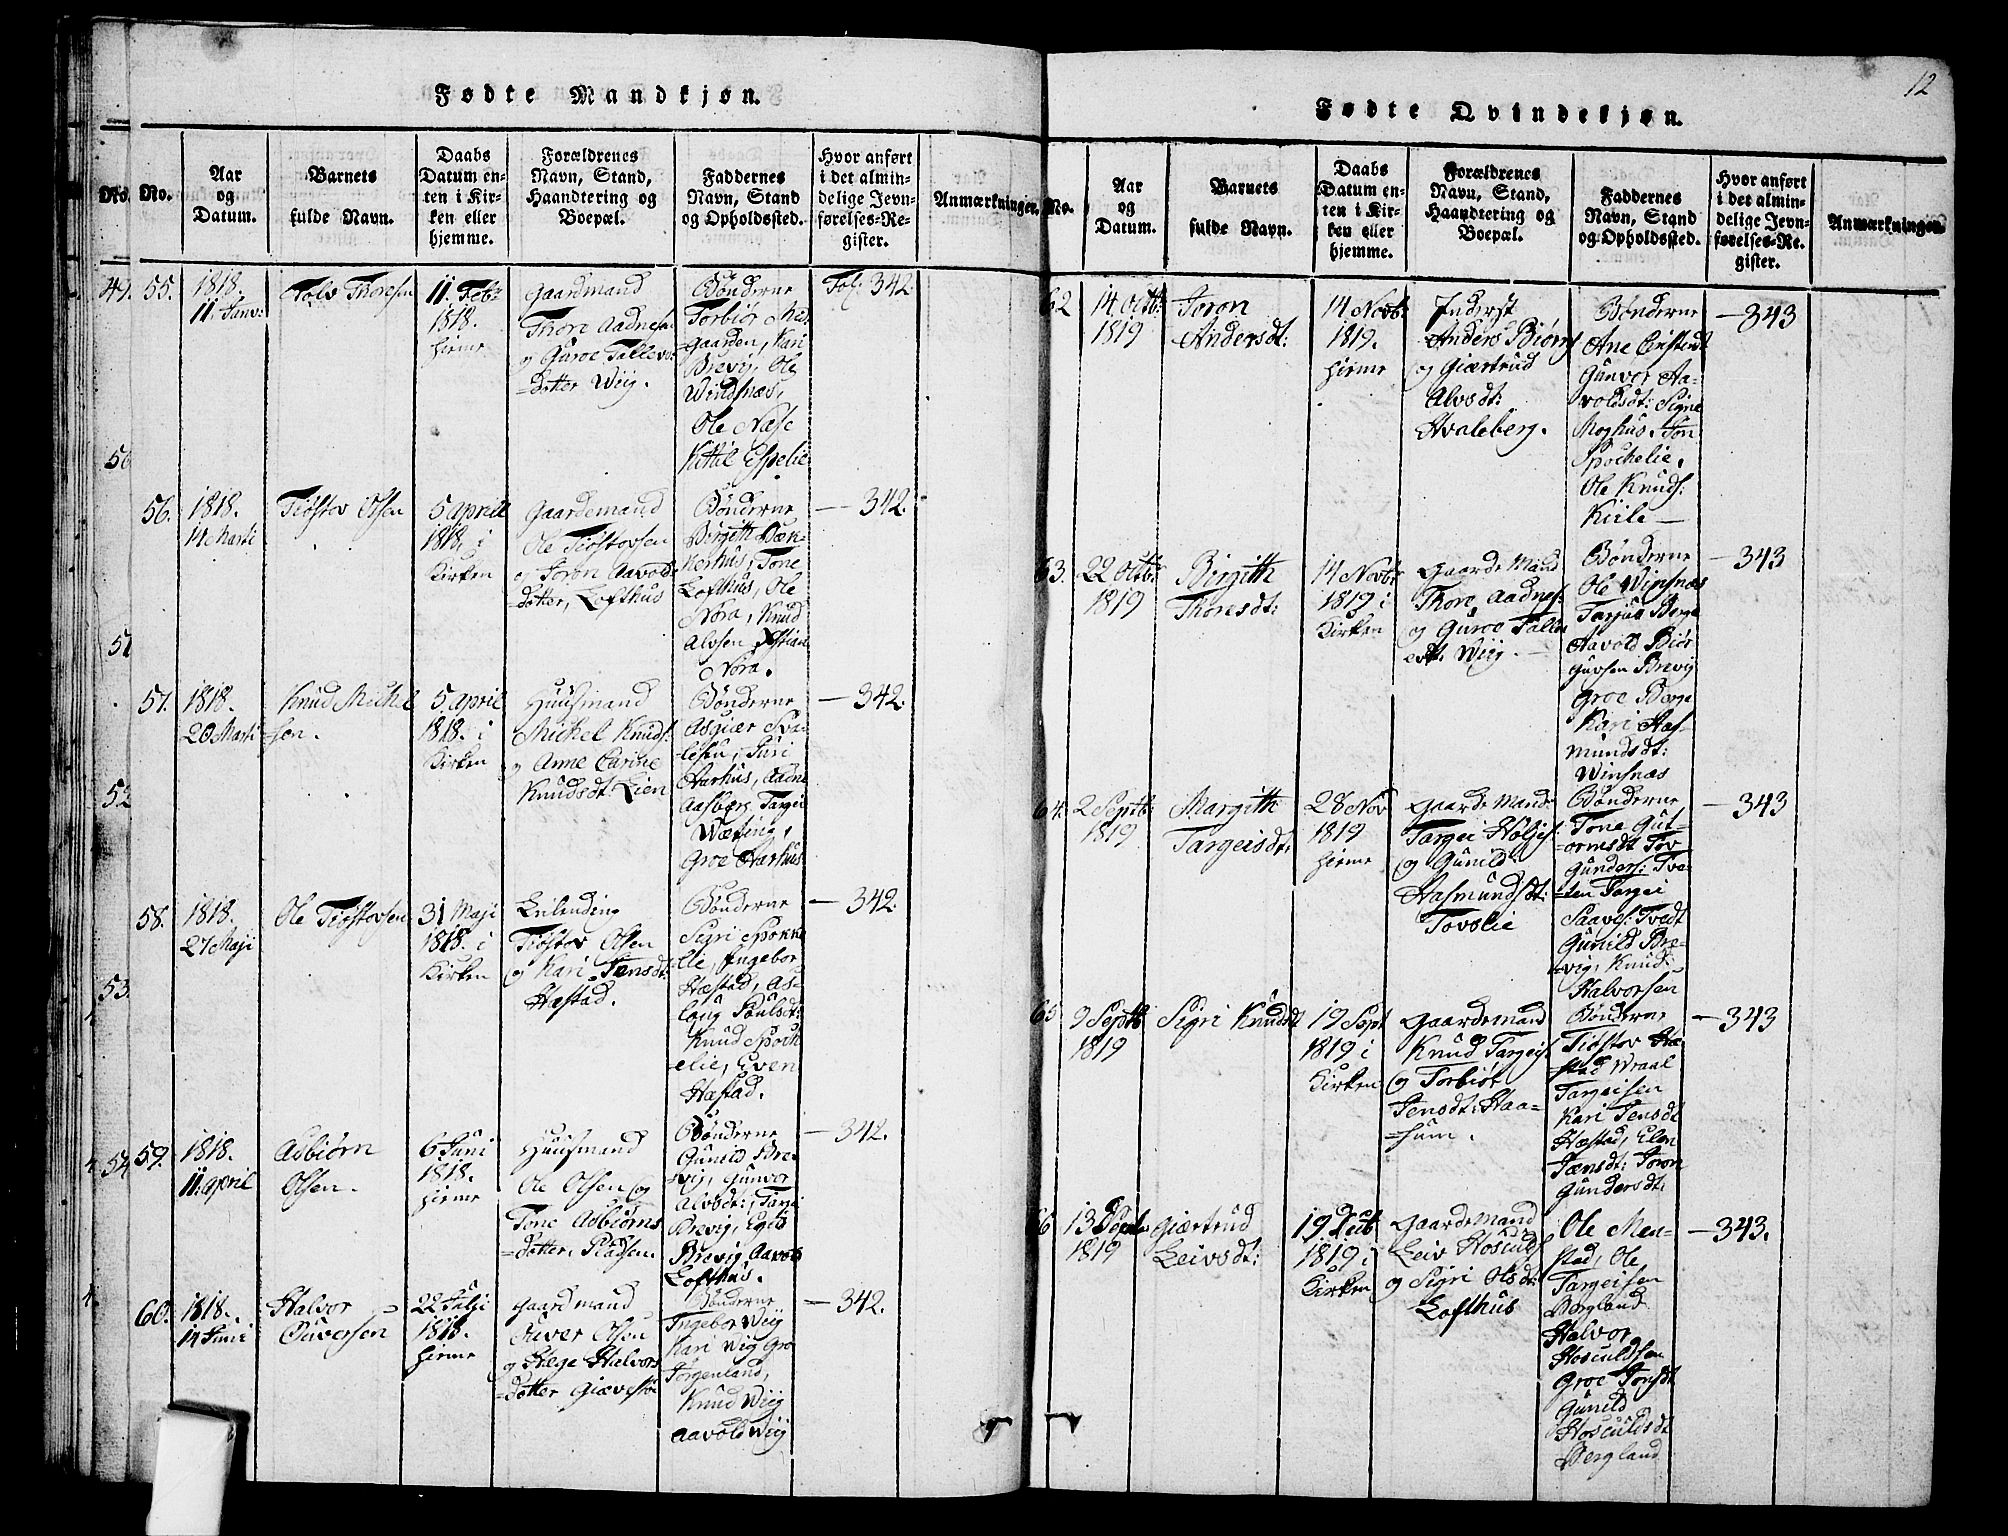 12
Fødte Mandkjøn.
No.
No.
Aar
og
Datum.
Barnets
fulde Navn.
Daabs
Datum en-
ten i Kir-
ken eller
hjemme.
Forældrenes
Navn, Stand,
Haandtering og
Boepæl.
Faddernes
Navn, Stand
og Opholdssted.
Hvor anført
i det almin-
delige Jevn-
førelses-Re-
gister.
Anmærkninger.
49.
50
51
52
53.
54
55.
1818.
11. Janv:
Tolv Thoresen
11. Feb:
1818.
hieme
Gaardmand
Thore Aadnesen
og Guroe Tallevs
dotter Wiig.
Bønderne
Torbiør
gaarden, Kari
Brevig, Ole
Windsnæs,
Ole Næse
Kittil Espelie
Fol: 342
56.
1818.
14 Marti
Tiøstov Olsen
5 April
1818. i
Kirken
Gaardemand
Ole Tiøstovsen
og Joron Aavolds
dotter, Lofthus
Bønderne
Birgith Bæk-
kerhus, Tone
Lofthus, Ole
Nora, Knud
Alvsen
Nora.
— 342.
57.
1818.
20 Marti
Knud Michel
sen.
5. April
1818. i
Kirken
Huusmand
Michel Knuds:
og Anne Carine
Knudsdt: Lien
Bønderne
Asgiær
Juri
Aarhus, Aadne
Aasberg, Targei
Groe Aarhus
— 342.
58.
1818.
27 Maji
Ole Tiøstovsen
31 Maji
1818. i
Kirken
Leilending
Tiøstov Olsen
og Kari Jensdt:
Hæstad.
Bønderne
Sigri Spokke
lie, Ingebor
Hæstad, As-
laug Poulsdt:
Knud Spoch
elie, Even
Hæstad.
— 342.
59.
1818.
11. April
Asbiørn
Olsen.
6 Juni
1818.
hieme
Huusmand
Ole Olsen og
Tone Asbiørns
dotter, Pladsen
Bønderne
Gunild Bre-
vig, Gunvor
Alvsdt:, Tarjei
Brevig, Egild
Brevig, Aavold
Lofthus.
— 342.
60.
1818.
14 Junii
Halvor
Ouversen
22 Julji
1818.
hieme
Gaardmand
Ouver Olsen
og Hæge Halvors
dotter Giævestøe
Bønderne
Ingebor Wiig
Kari Wiig Gro
Jorgenland,
Knud Wiig
Aavold Wiig
— 342.
Fødte Qvindekjøn.
No.
Aar
og
Datum.
Barnets
fulde Navn.
Daabs
Datum en-
ten i Kir-
ken eller
hjemme.
Forældrenes
Navn, Stand,
Haandtering og
Boepæl.
Faddernes
Navn, Stand
og Opholdssted.
Hvor anført
i det almin-
delige Jevn-
førelses-Re-
gister.
Anmærkninger.
62
14 Octb:
1819
Joron
Andersdt:
14 Novb:
1819.
hieme
Inderst
Anders Biørns
og Giærtrud
Alvsdt:
Hvaleberg.
Bønderne
Ane Cirstendt
Gunvor Aa-
voldsdt: Signe
Moghus. Jon
Spochelie,
Ole Knuds:
Kiile —
— 343
63.
22 Octb:
1819
Birgith
Thoresdt:
14 Novb:
1819 i
Kirken
Gaarde Mand
Thore Aadnes:
og Guroe Talle
vsdt. Wiig. —
Bønderne
Ole Winsnæs
Tarjus Berge
Aavold Biør
guvsen Brevig
Groe Berge
Kari Aas-
mundsdt:
Winsnæs
— 343
64.
2 Septb:
1819
Margith
Targeisdt:
28 Nov
1819
hieme
Gaarde Mand
Targei Høljes:
og Gunild
Aasmundsdt:
Tovslie
Bønderne
Tone Gut-
ormsdt Tov
Gunders: Tve-
ten Targei
Saaves: Tvedt
Gunild Bre-
vig, Knud
Halvorsen
— 343
65
9 Septb
1819
Sigri Knudsdt
19 Sept
1819 i
Kirken
Gaardemand
Knud Targeis:
og Torbiør
Jensdt: Haa-
hum.
Bønderne
Tiøstov Hæ-
stad Wraal
Targeisen
Kari Jensdt
Hæstad, Elen
Jænsdt: Joron
Gundersdt:
— 343
66
1819
Giærtrud
Leivsdt:
1819 i
Kirken
Gaardemand
Leiv Hosculds
og Sigri Olsdt:
Lofthus
Ole Men-
stad, Ole
Targeisen
Bergland
Halvor
Hosculdsen
Groe Jonsdt
Gunild
Hosculdsdt
Bergland
— 343.